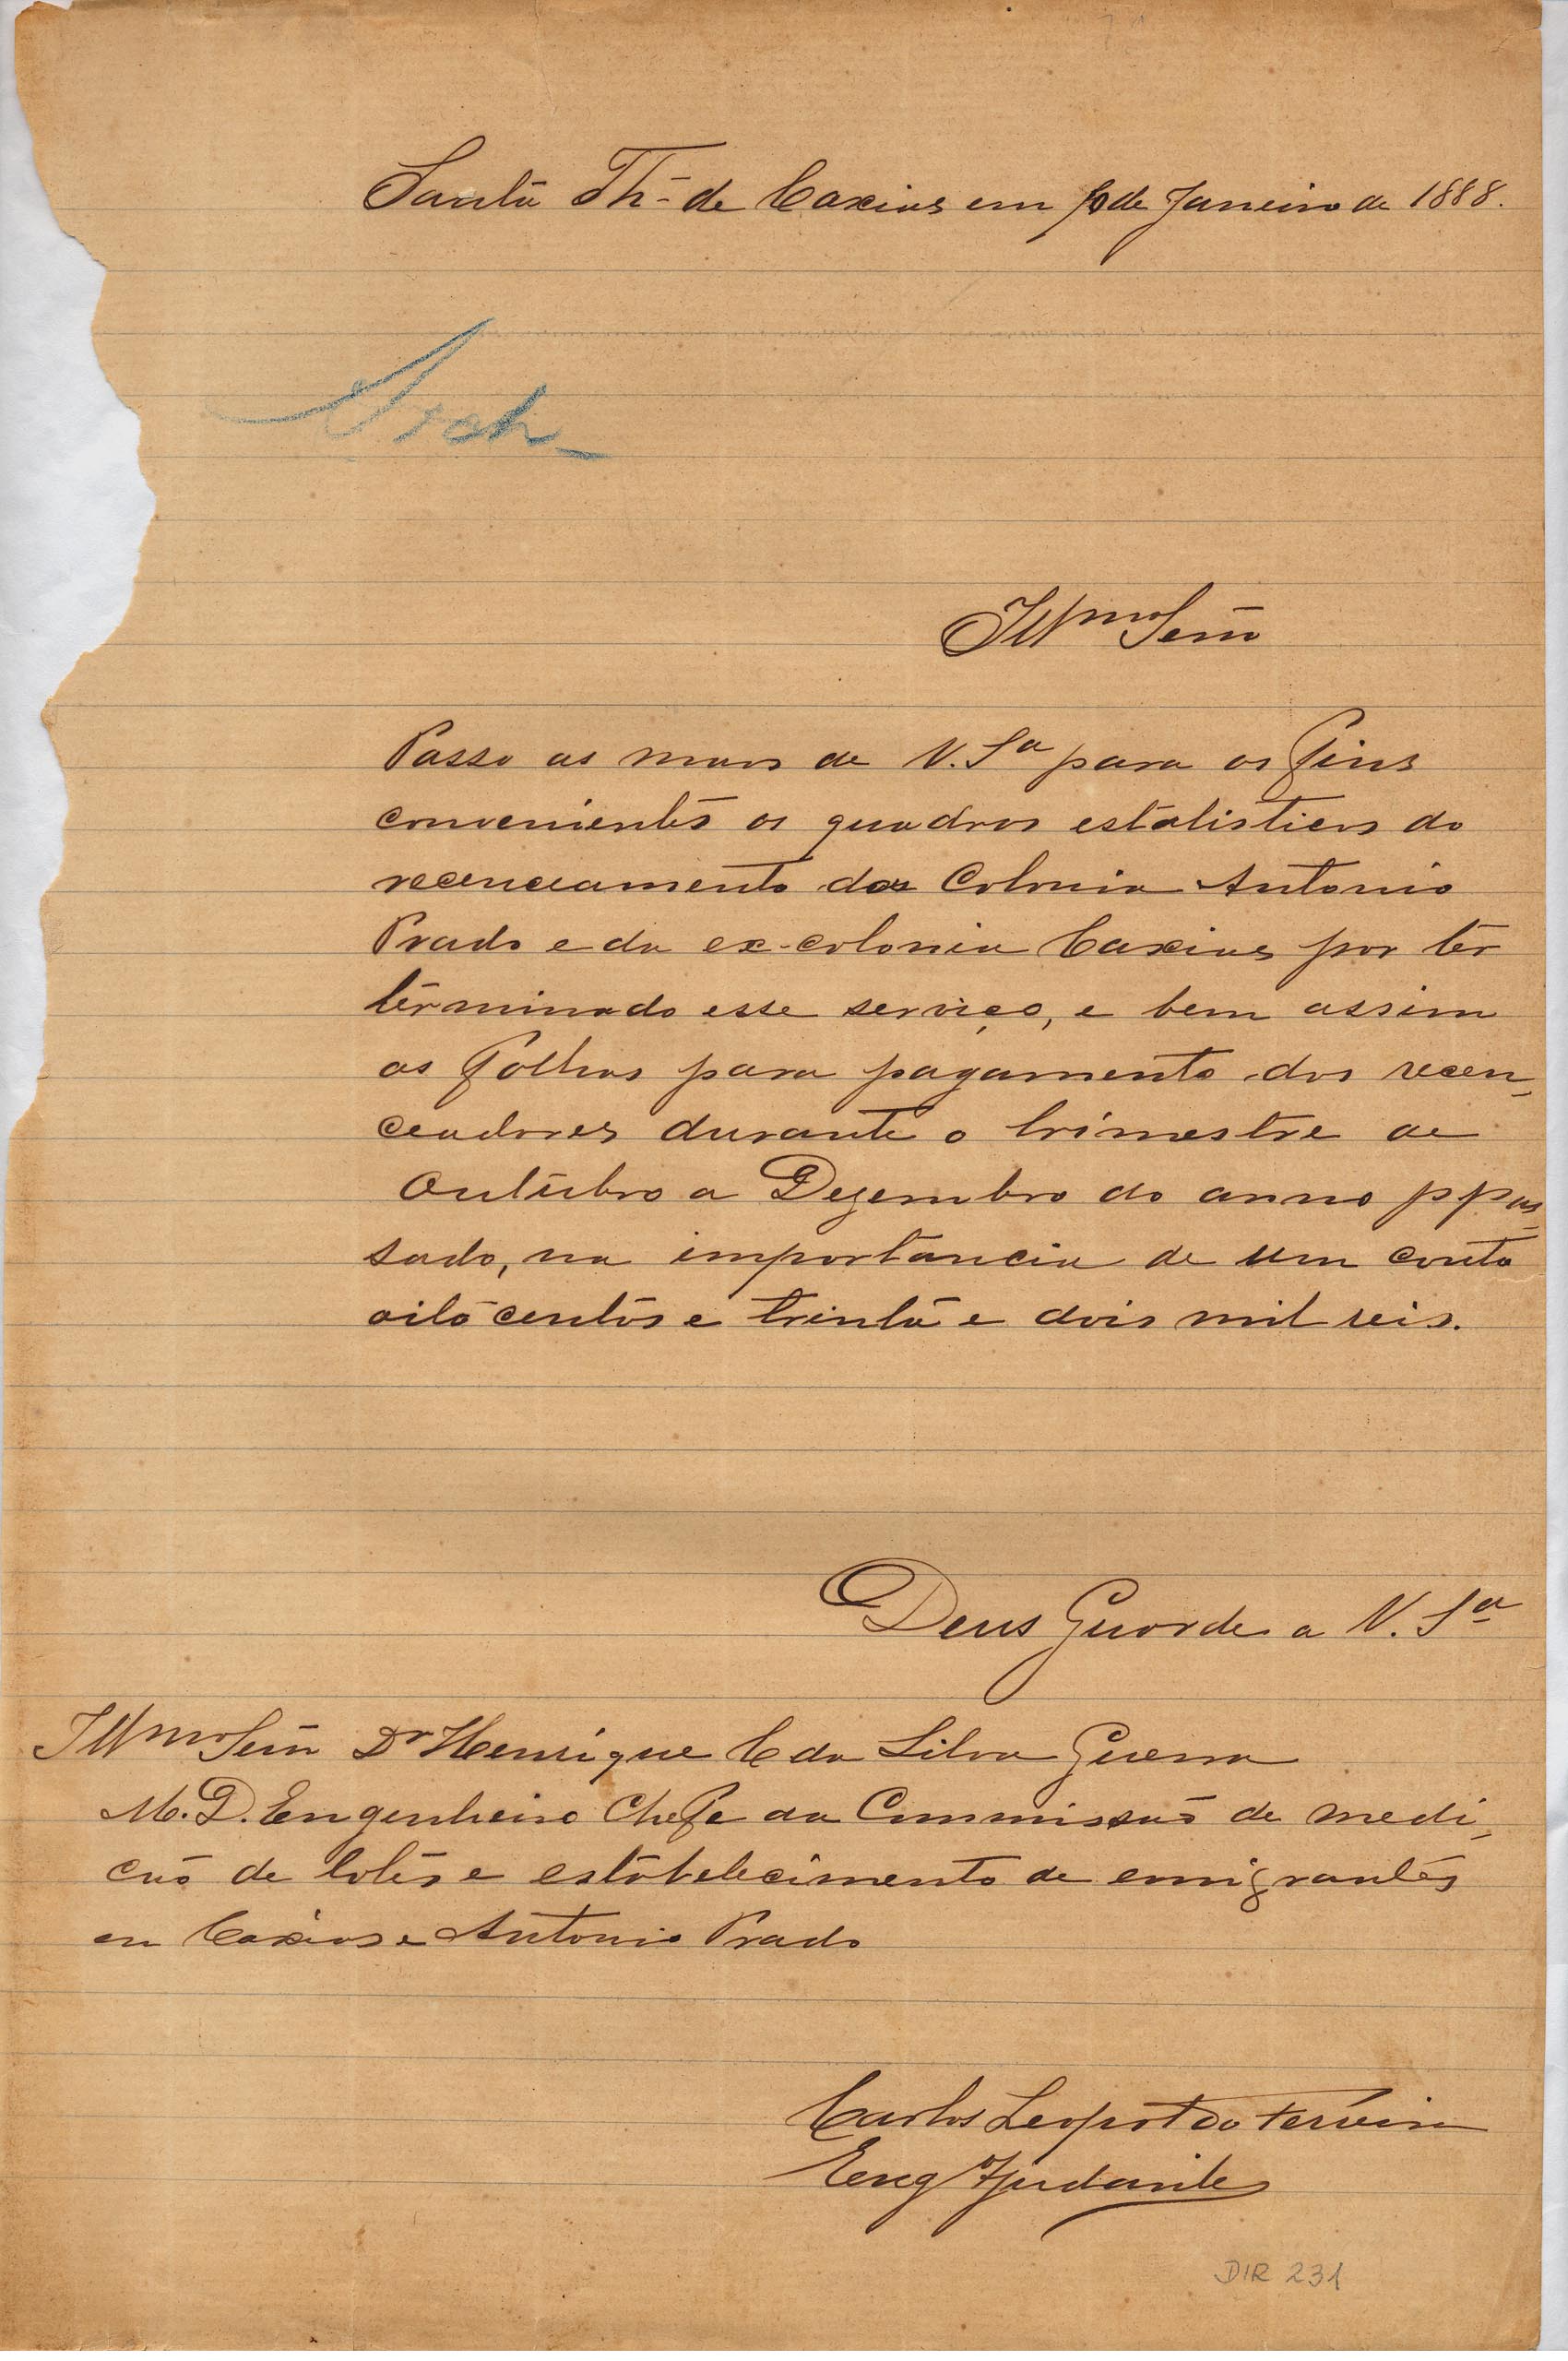 Santa Th.ª de Caxias em 10 de Janeiro de 1888.
Arch
Illmo Senr
Passo as maos de V. Sa para os fins
convenientes os quadros estatisticos do
recenceamento da Colonia Antonio
Prado e da ex-colonia Caxias por ter
terminado esse serviço, e bem assim
as folhas para pagamento dos recen-
ceadores durante o trimestre de
Outubro a Dezembro do anno ppas-
sado, na importancia de um conto
oito centos e trinta e dois mil reis.
Deus Guarde a V. Sa
Illmo Senr Dr Henrique C da Silva Guerra
M. D. Engenheiro Chefe da Commissaõ de medi-
caõ de lotes e estabelecimento de emigrantes
em Caxias e Antonio Prado
Carlos Leopoldo Ferreira
Eng Ajudante
DIR 231